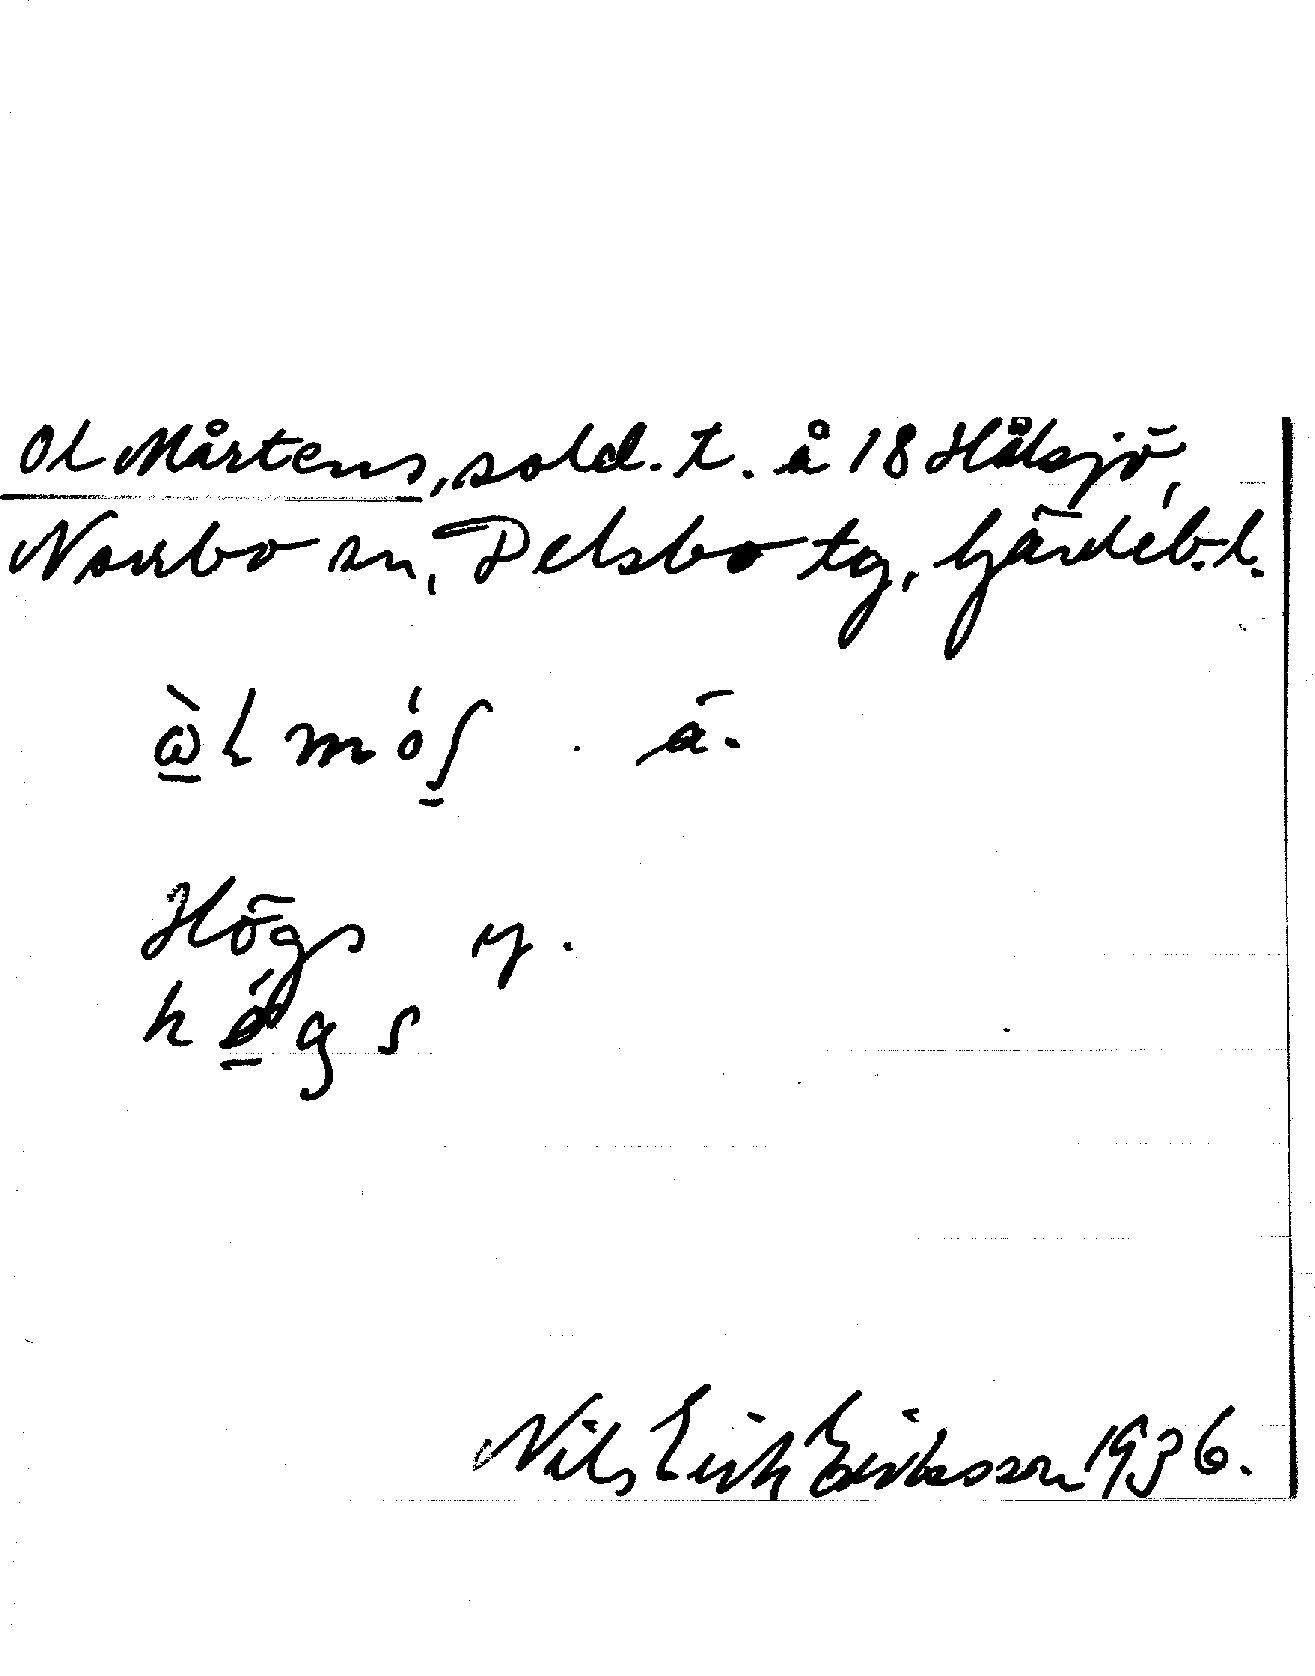 Ol Mårtens, sold. t. å 18 Hålsjö,
Norrbo sn, Delsbo tg,
ä.
Högs y.
högs
Nils Erik Eriksson 1936.